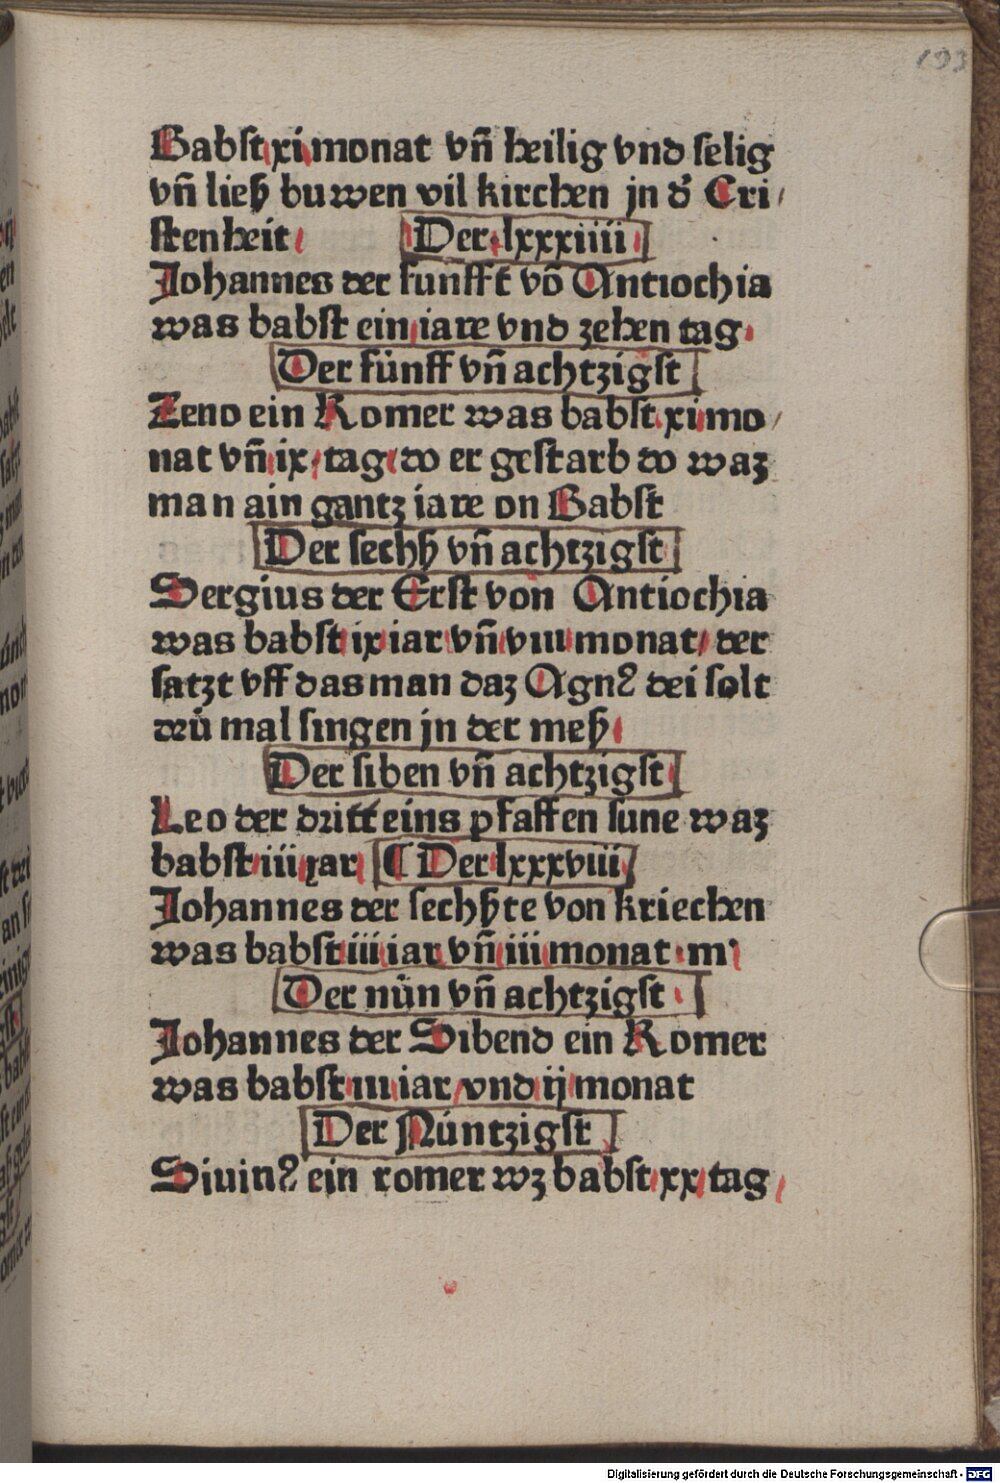 193
Babst xi monat vn̄ heilig vnd selig
vn̄ ließ buwen vil kirchen jn d̓ Cri
stenheit Der lxxxiiii
Johannes der funfft vō Antiochia
was babst ein iare vnd zehen tag
Der fúnff vn̄ achtzigst
Zeno ein Romer was babst xi mo
nat vn̄ ix tag do er gestarb do waʒ
man ain gantz iare on Babst
Der sechß vn̄ achtzigst
Sergius der Erst von Antiochia
was babst ix iar vn̄ viii monat der
satzt vff das man daʒ Agnꝰ dei solt
drú mal singen jn der meß
Der siben vn̄ achtzigst
Leo der dritt eins pfaffen sune waʒ
babst iii jar Der lxxxviii
Johannes der sechßte von kriechen
was babst iii iar vn̄ iii monat m
Der nún vn̄ achtzigst
Johannes der Sibend ein Romer
was babst iii iar vnd ij monat
Der Núntzigst
Siuinꝰ ein romer wʒ babst xx tag
Digitalisierung gefördert durch die Deutsche Forschungsgemeinschaft - DFG